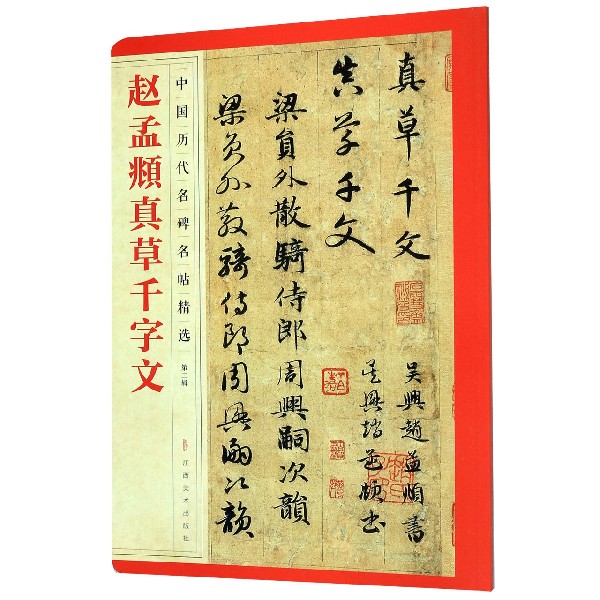 赵孟頫真草千字文
中国历代名碑名帖精选
第二辑
江西美术出版社
真草千文
真草千文
吴興趙孟頫書
吴興趙孟頫書
梁員外散騎侍郎周興嗣次韻
梁員外散騎侍郎周興嗣次韻